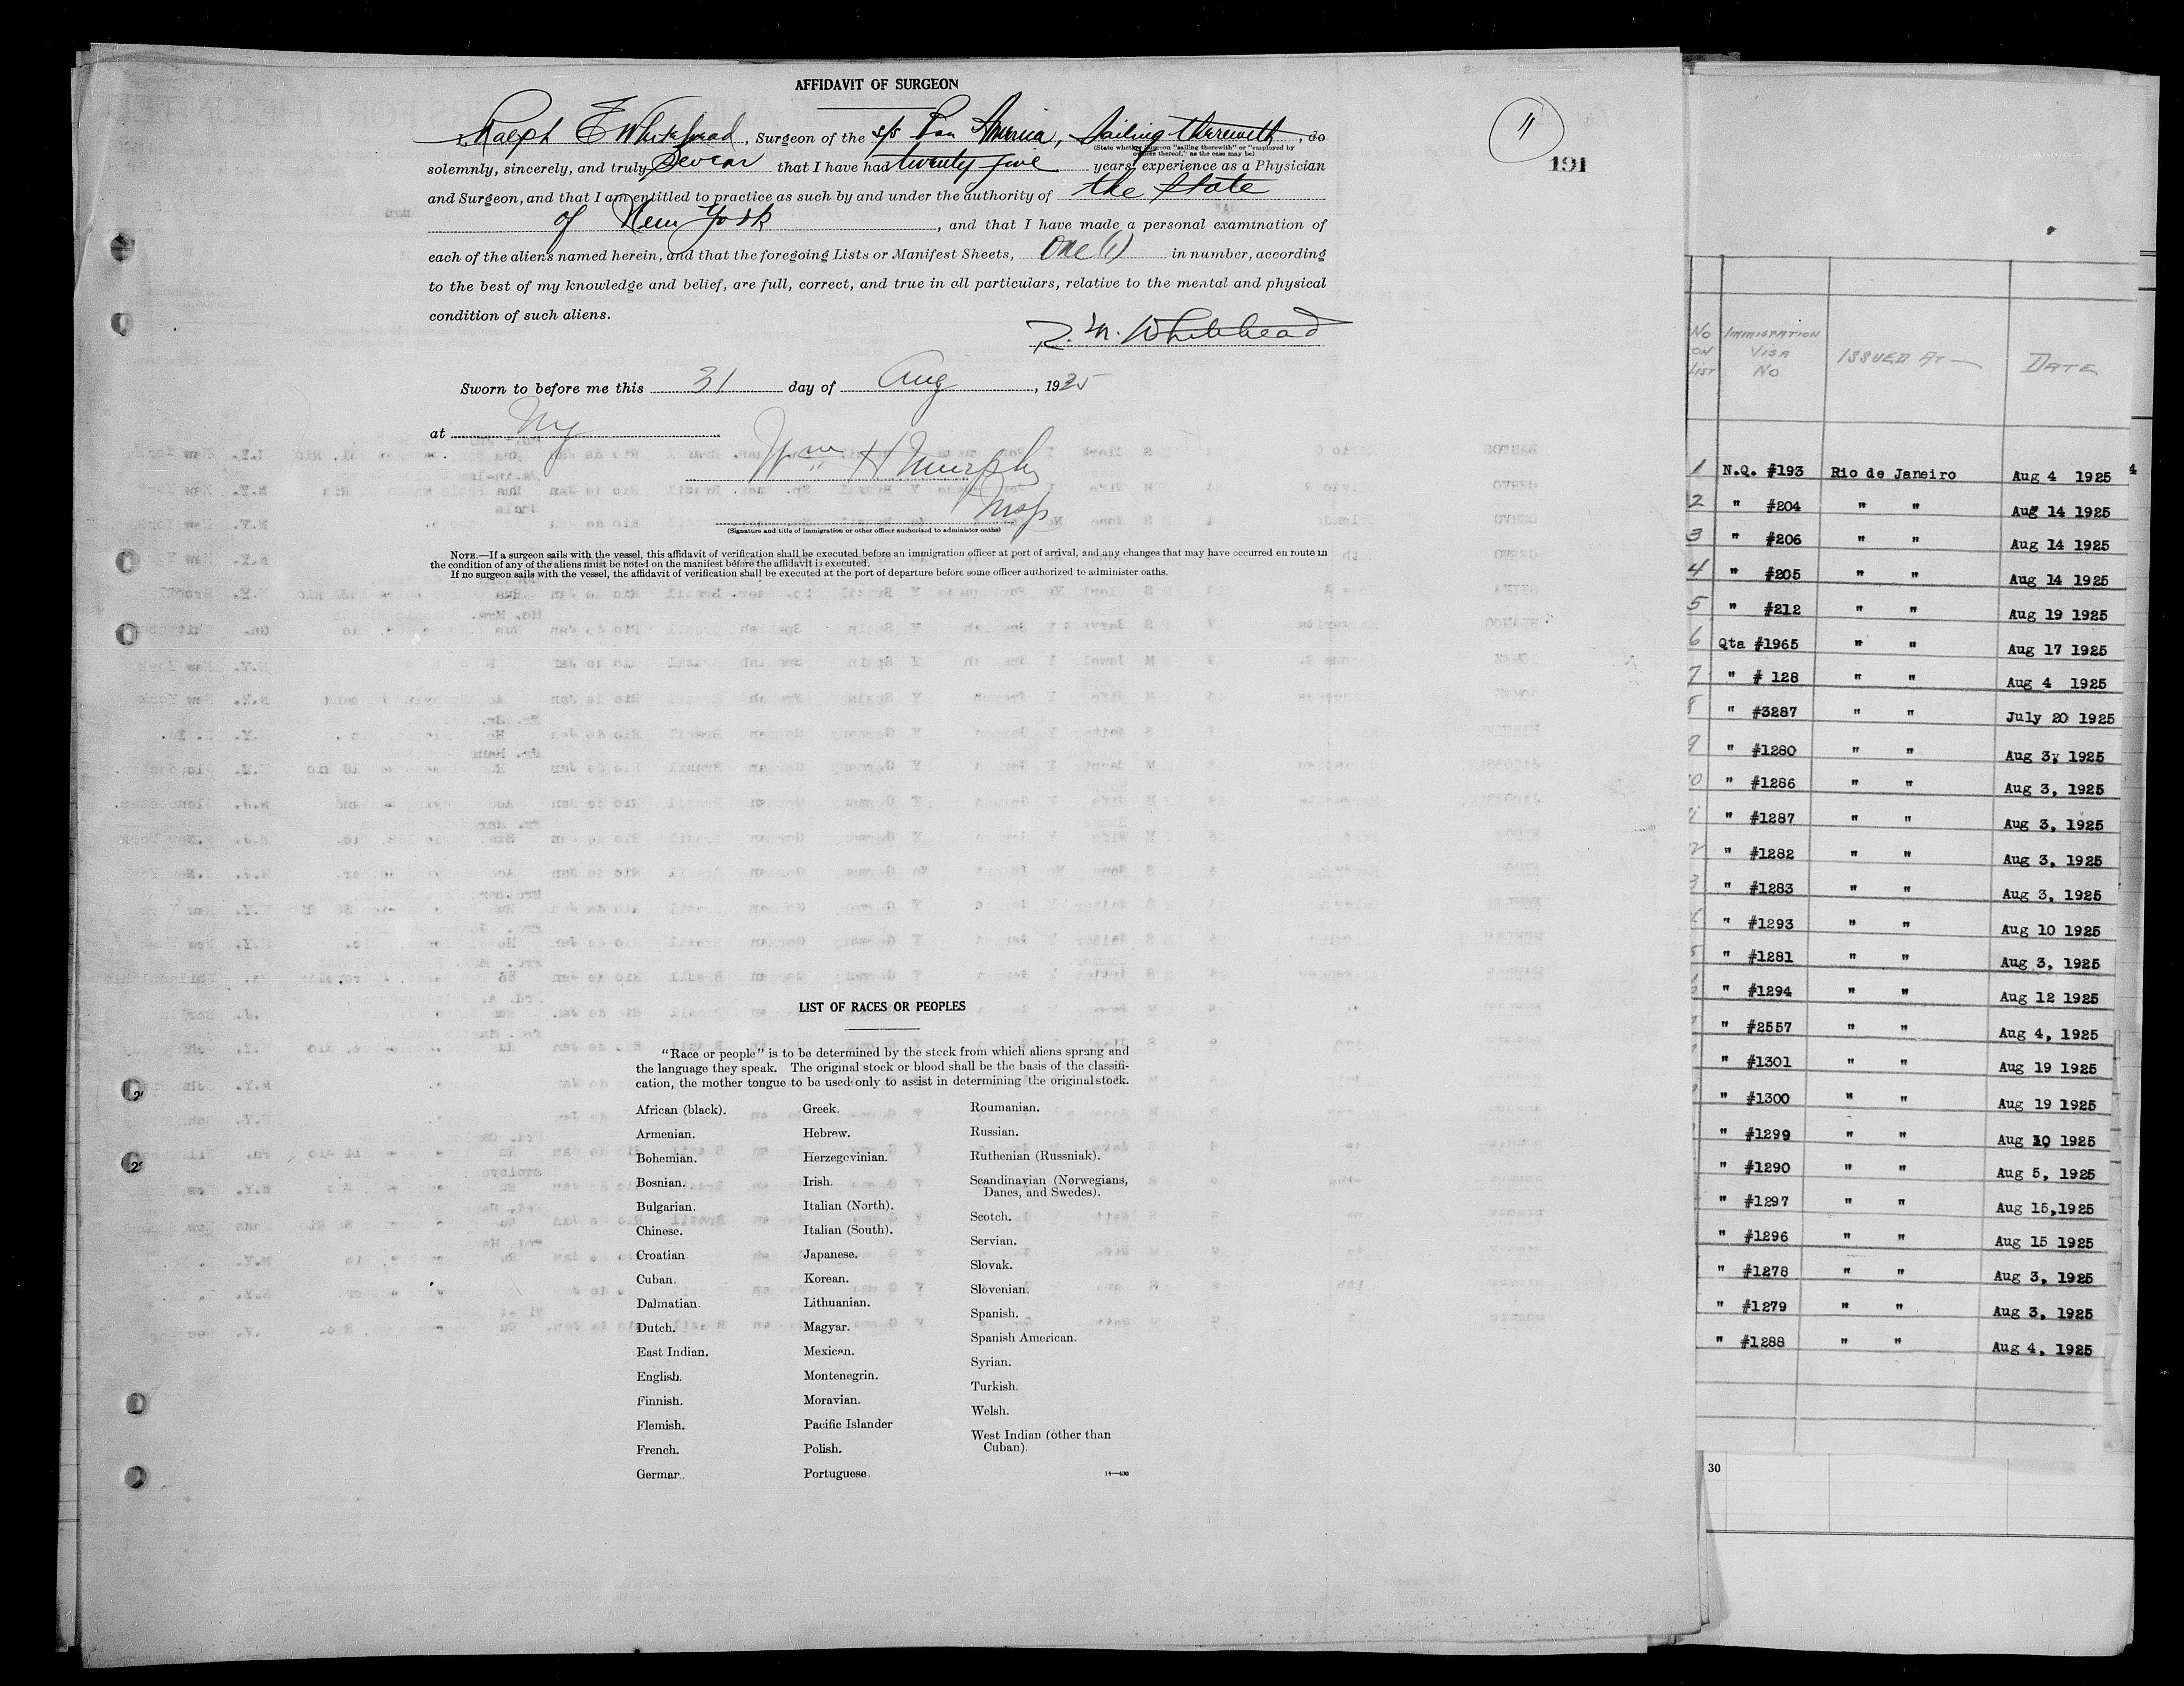 AFFIDAVIT OF SURGEON
I, Ralph E Whitehead, Surgeon of the s/s Pan America, Sailing therewith, do
(State whether Surgeon "sailing therewith" or "employed by
owners thereof," as the case may be)
solemnly, sincerely, and truly Swear that I have had twenty five years' experience as a Physician
and Surgeon, and that I am entitled to practice as such by and under the authority of the State
of New York, and that I have made a personal examination of
each of the aliens named herein, and that the foregoing Lists or Manifest Sheets, One (1) in number, according
to the best of my knowledge and belief, are full, correct, and true in all particulars, relative to the mental and physical
condition of such aliens.
Whitehead
Sworn to before me this 31 day of Aug, 1925
at NY
Wm H Murphy
Insp
(Signature and title of immigration or other officer authorized to administer oaths)
NOTE.—If a surgeon sails with the vessel, this affidavit of verification shall be executed before an immigration officer at port of arrival, and any changes that may have occurred en route in
the condition of any of the aliens must be noted on the manifest before the affidavit is executed.
If no surgeon sails with the vessel, the affidavit of verification shall be executed at the port of departure before some officer authorized to administer oaths.
11
191
LIST OF RACES OR PEOPLES
"Race or people" is to be determined by the stock from which aliens sprang and
the language they speak. The original stock or blood shall be the basis of the classifi-
cation, the mother tongue to be used only to assist in determining the original stock.
African (black).
Armenian.
Bohemian.
Bosnian.
Bulgarian.
Chinese.
Croatian.
Cuban.
Dalmatian.
Dutch.
East Indian.
English.
Finnish.
Flemish.
French.
German.
Greek.
Hebrew.
Herzegovinian.
Irish.
Italian (North).
Italian (South).
Japanese.
Korean.
Lithuanian.
Magyar.
Mexican.
Montenegrin.
Moravian.
Pacific Islander
Polish.
Portuguese.
Roumanian.
Russian.
Ruthenian (Russniak).
Scandinavian (Norwegians,
Danes, and Swedes).
Scotch.
Servian.
Slovak.
Slovenian.
Spanish.
Spanish American.
Syrian.
Turkish.
Welsh.
West Indian (other than
Cuban).
14—430
NO ON LIST IMMIGRATION VISA NO ISSUED AT— DATE
1 N.Q. #193 Rio de Janeiro Aug 4 1925
2 " #204 " " Aug 14 1925
3 " #206 " " Aug 14 1925
4 " #205 " " Aug 14 1925
5 " #212 " " Aug 19 1925
6 Qta #1965 " " Aug 17 1925
7 " # 128 " " Aug 4 1925
8 " #3287 " " July 20 1925
9 " #1280 " " Aug 3, 1925
0 " #1286 " " Aug 3, 1925
" #1287 " " Aug 3, 1925
2 " #1282 " " Aug 3, 1925
3 " #1283 " " Aug 3, 1925
" #1293 " " Aug 10 1925
5 " #1281 " " Aug 3, 1925
" #1294 " " Aug 12 1925
" #2557 " " Aug 4, 1925
" #1301 " " Aug 19 1925
" #1300 " " Aug 19 1925
" #1299 " " Aug 10 1925
" #1290 " " Aug 5, 1925
" #1297 " " Aug 15,1925
" #1296 " " Aug 15 1925
" #1278 " " Aug 3, 1925
" #1279 " " Aug 3, 1925
" #1288 " " Aug 4, 1925
30